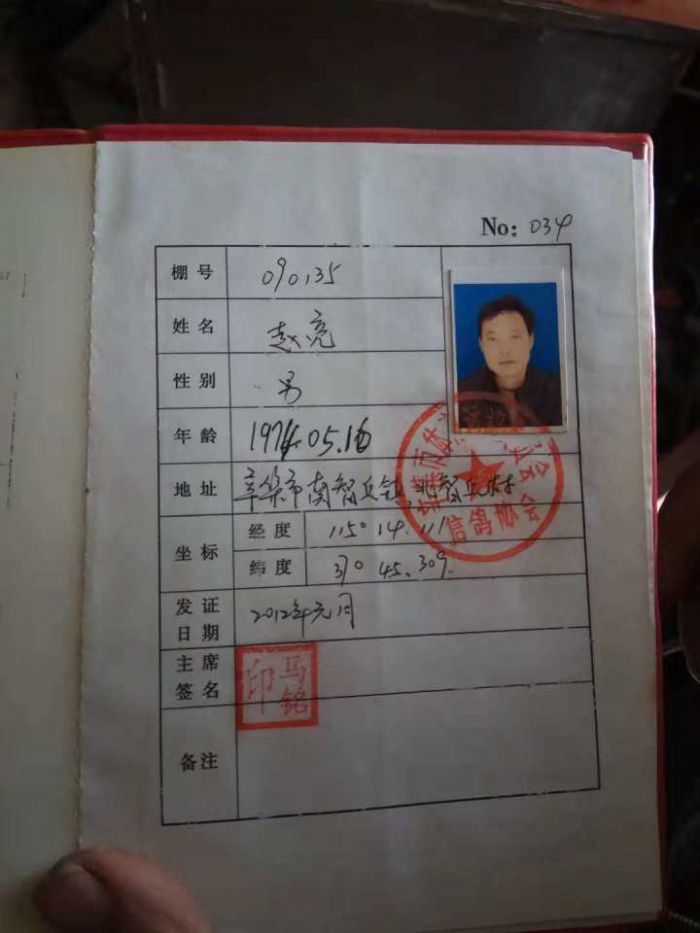 No: 034
棚号 090135
姓名 赵亮
性别 男
年龄 1974.05.16
地址 辛集市南智丘镇北智丘村
坐标 经度 115° 14.111
纬度 37° 45.309.
发证日期 2012年元月
主席签名 马铭印
备注
信鸽协会